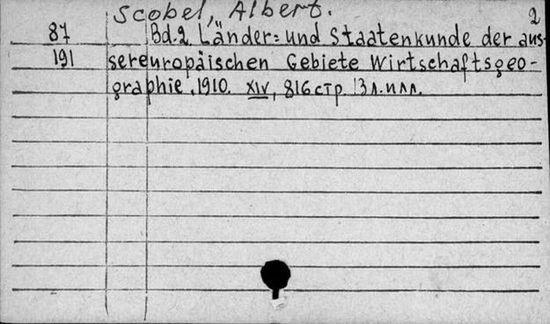 Scobel, Albert. 2
87 Bd.2 Länder= und Staatenkunde der aus-
191 sereuropäischen Gebiete Wirtschaftsgeo-
graphie, 1910. XIV, 816 стр. 3 л. илл.